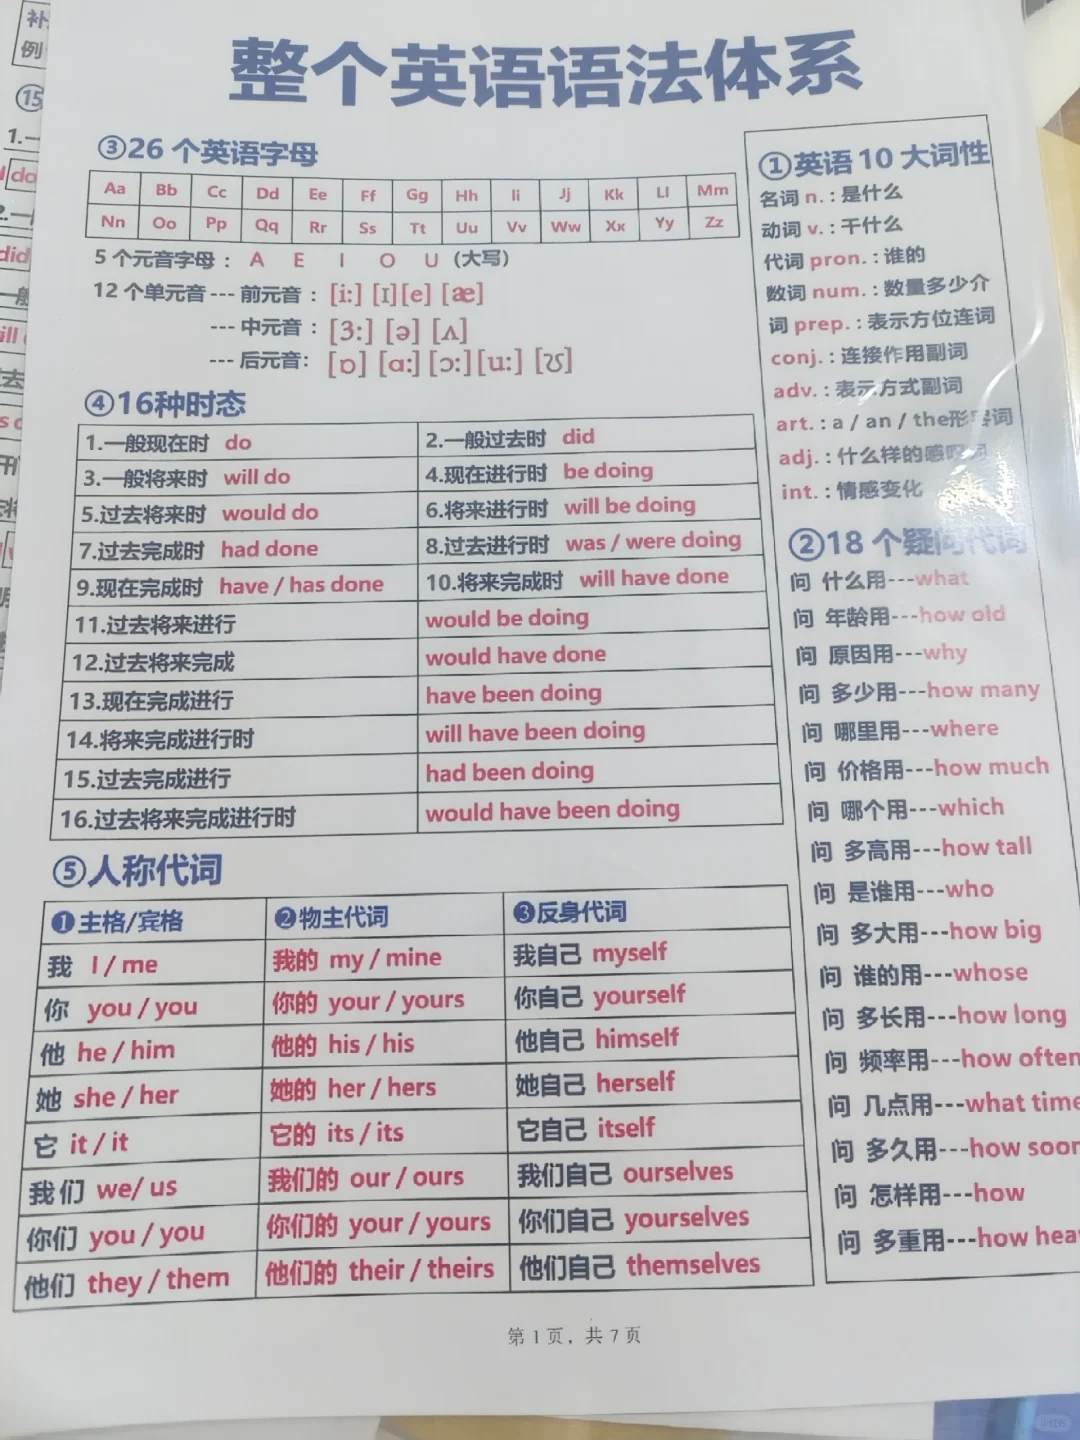 整个英语语法体系
③26 个英语字母
Aa Bb Cc Dd Ee Ff Gg Hh Ii Jj Kk Ll Mm
Nn Oo Pp Qq Rr Ss Tt Uu Vv Ww Xx Yy Zz
5 个元音字母： A E I O U (大写)
12 个单元音 --- 前元音： [i:] [ɪ][e] [æ]
--- 中元音： [3:] [ə] [ʌ]
--- 后元音： [ɒ] [ɑ:] [ɔ:][u:] [ʊ]
④16种时态
1.一般现在时 do 2.一般过去时 did
3.一般将来时 will do 4.现在进行时 be doing
5.过去将来时 would do 6.将来进行时 will be doing
7.过去完成时 had done 8.过去进行时 was / were doing
9.现在完成时 have / has done 10.将来完成时 will have done
11.过去将来进行 would be doing
12.过去将来完成 would have done
13.现在完成进行 have been doing
14.将来完成进行时 will have been doing
15.过去完成进行 had been doing
16.过去将来完成进行时 would have been doing
⑤人称代词
❶主格/宾格 ❷物主代词 ❸反身代词
我 I / me 我的 my / mine 我自己 myself
你 you / you 你的 your / yours 你自己 yourself
他 he / him 他的 his / his 他自己 himself
她 she / her 她的 her / hers 她自己 herself
它 it / it 它的 its / its 它自己 itself
我们 we/ us 我们的 our / ours 我们自己 ourselves
你们 you / you 你们的 your / yours 你们自己 yourselves
他们 they / them 他们的 their / theirs 他们自己 themselves
①英语 10 大词性
名词 n. : 是什么
动词 v. : 干什么
代词 pron. : 谁的
数词 num. : 数量多少介
词 prep. : 表示方位连词
conj. : 连接作用副词
adv. : 表示方式副词
art. : a / an / the形容词
adj. : 什么样的感叹词
int. : 情感变化
②18 个疑问代词
问 什么用---what
问 年龄用---how old
问 原因用---why
问 多少用---how many
问 哪里用---where
问 价格用---how much
问 哪个用---which
问 多高用---how tall
问 是谁用---who
问 多大用---how big
问 谁的用---whose
问 多长用---how long
问 频率用---how often
问 几点用---what time
问 多久用---how soon
问 怎样用---how
问 多重用---how hea
第 1 页，共 7 页
补
例
⑮
小红书